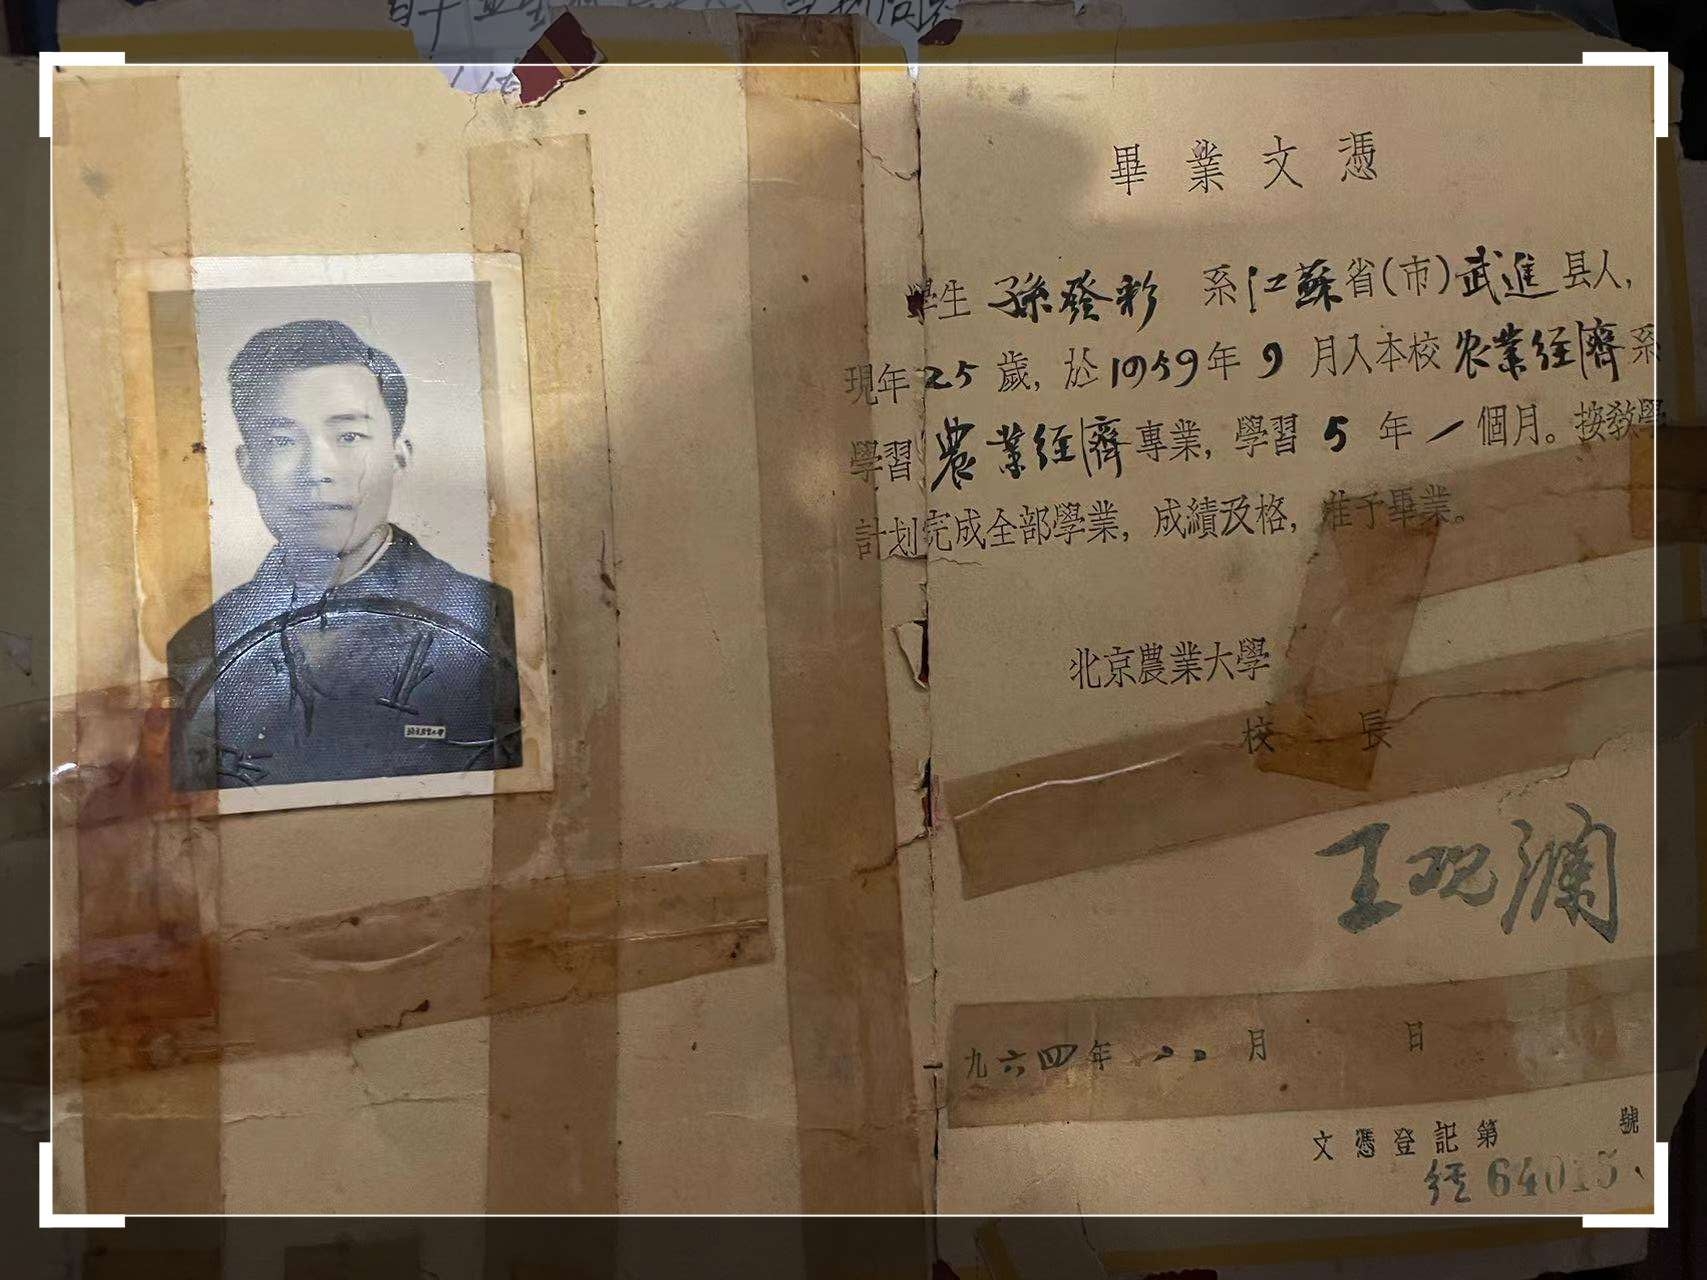 北京農業大學
畢業文憑
學生 孫發彩 系江蘇省(市)武進县人,
現年25歲,於1959年9月入本校农業经濟系
學習農業经濟專業,學習5年一個月。按教學
計划完成全部學業,成績及格,准予畢業。
北京農業大學
校 長
王观澜
一九六四年 月 日
文憑登記第 號
经64015